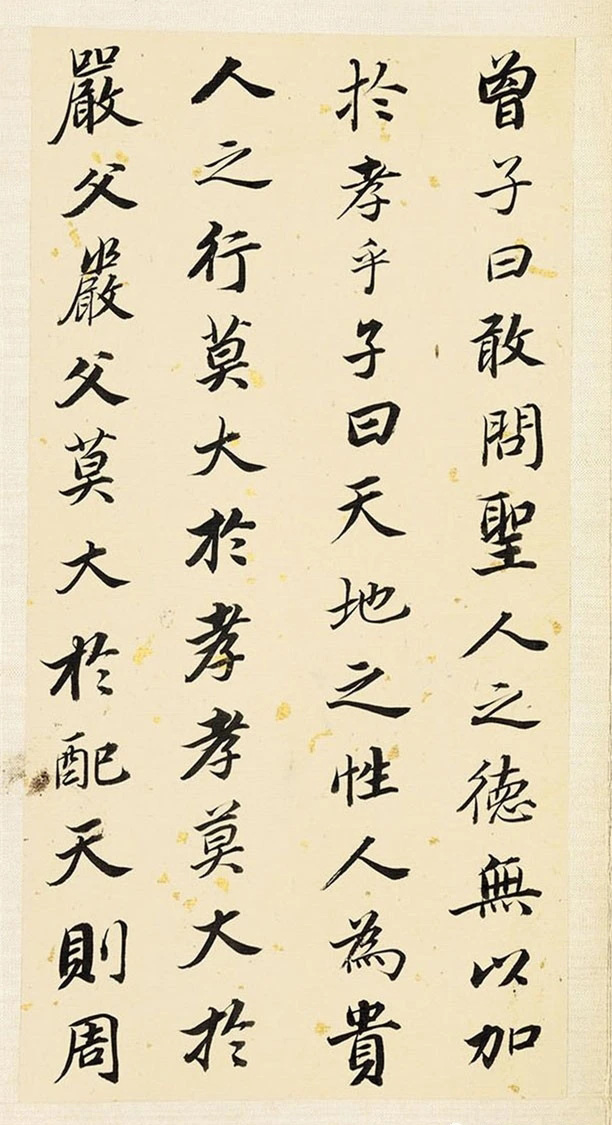 曾子曰敢問聖人之德無以加
於孝乎子曰天地之性人為貴
人之行莫大於孝孝莫大於
嚴父嚴父莫大於配天則周